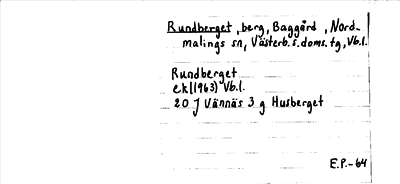 Rundberget, berg, Baggård, Nord-
malings sn, Västerb.s.doms.tg, Vb.l.
Rundberget
ek(1963) Vb.l.
20 J Vännäs 3 g Husberget
E.P.-64